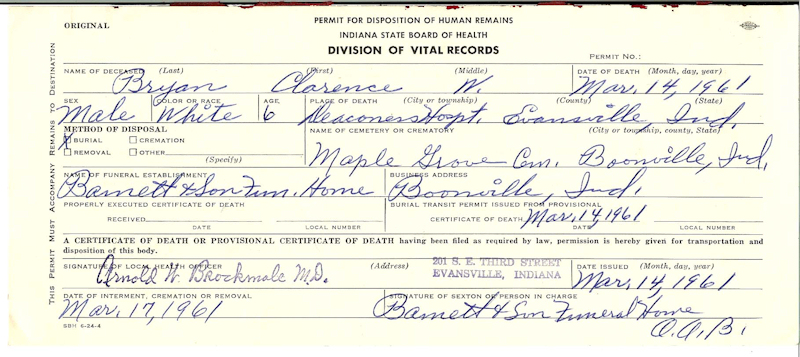 ORIGINAL
PERMIT FOR DISPOSITION OF HUMAN REMAINS
INDIANA STATE BOARD OF HEALTH
DIVISION OF VITAL RECORDS
PERMIT NO.:
THIS PERMIT MUST ACCOMPANY REMAINS TO DESTINATION
NAME OF DECEASED (Last) (First) (Middle) DATE OF DEATH (Month, day, year)
Bryan Clarence W. Mar. 14, 1961
SEX COLOR OR RACE AGE PLACE OF DEATH (City or township) (County) (State)
Male White 6 Deaconess Hospt. Evansville, Ind.
METHOD OF DISPOSAL NAME OF CEMETERY OR CREMATORY (City or township, county, State)
X BURIAL CREMATION
REMOVAL OTHER (Specify) Maple Grove Cem. Boonville, Ind.
NAME OF FUNERAL ESTABLISHMENT BUSINESS ADDRESS
Barnett & Son Fun. Home Boonville, Ind.
PROPERLY EXECUTED CERTIFICATE OF DEATH BURIAL TRANSIT PERMIT ISSUED FROM PROVISIONAL
RECEIVED CERTIFICATE OF DEATH Mar. 14, 1961
DATE LOCAL NUMBER DATE LOCAL NUMBER
A CERTIFICATE OF DEATH OR PROVISIONAL CERTIFICATE OF DEATH having been filed as required by law, permission is hereby given for transportation and
disposition of this body.
SIGNATURE OF LOCAL HEALTH OFFICER (Address) 201 S. E. THIRD STREET DATE ISSUED (Month, day, year)
Arnold W. Brockmole M.D. EVANSVILLE, INDIANA Mar. 14, 1961
DATE OF INTERMENT, CREMATION OR REMOVAL SIGNATURE OF SEXTON OR PERSON IN CHARGE
Mar. 17, 1961 Barnett & Son Funeral Home
SBH 6-24-4 O.A.B.